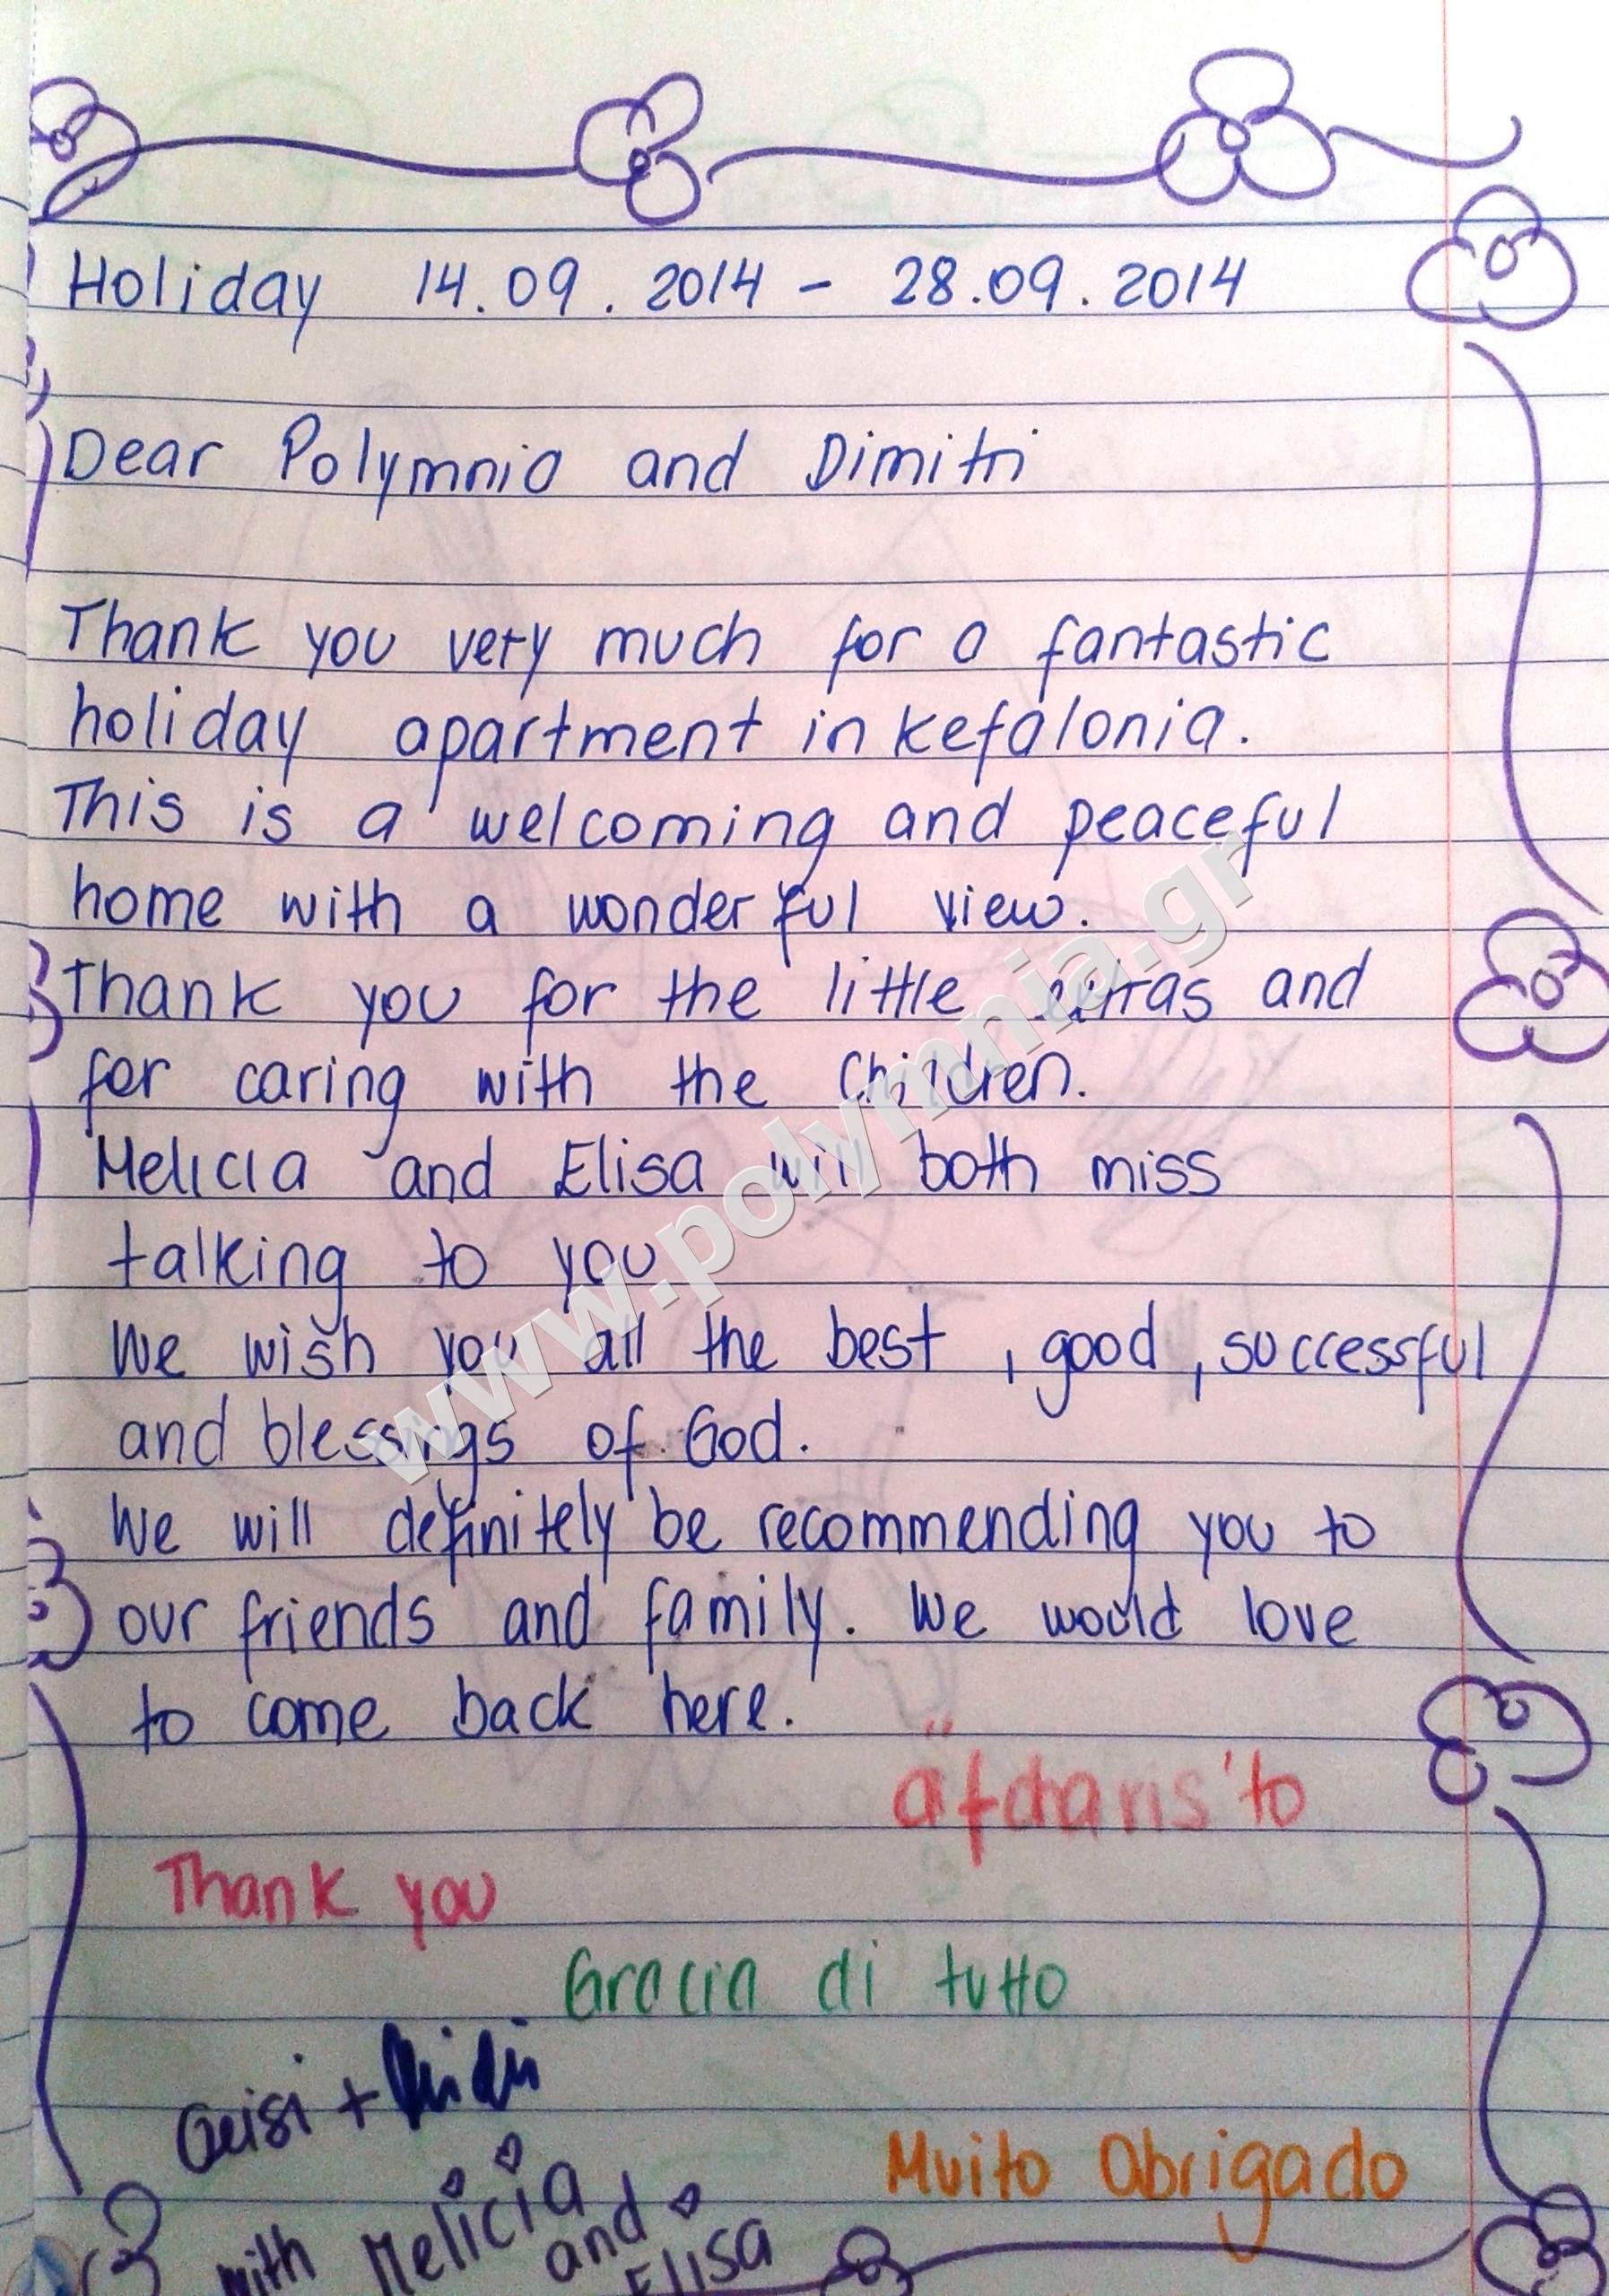 Holiday 14.09.2014 - 28.09.2014
Dear Polymnia and Dimitri
Thank you very much for a fantastic
holiday apartment in Kefalonia.
This is a welcoming and peaceful
home with a wonderful view.
Thank you for the little extras and
for caring with the Children.
Melicia and Elisa will both miss
talking to you
We wish you all the best, good, successful
and blessings of God.
We will definitely be recommending you to
our friends and family. We would love
to come back here.
äfcharis'to
Thank you
Gracia di tutto
Geisi +
Muito Obrigado
with Melicia
and
Elisa
www.polymnia.gr